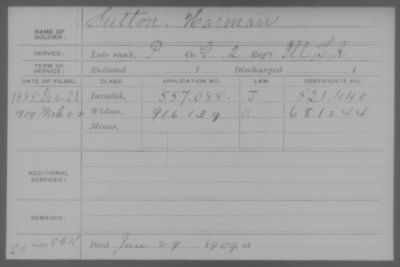 NAME OF SOLDIER: Sutton, Harman
SERVICE: Late rank, P Co. 2 Reg't Ill L.A.
TERM OF SERVICE: Enlisted , 1 Discharged , 1
DATE OF FILING. CLASS. APPLICATION NO. LAW. CERTIFICATE NO.
1885 Dec 21 Invalid, 557.088. J. 521.440
1909 Mch 22 Widow, 916139 681244
Minor,
ADDITIONAL SERVICES:
REMARKS:
Died Jan 29, 1909 at